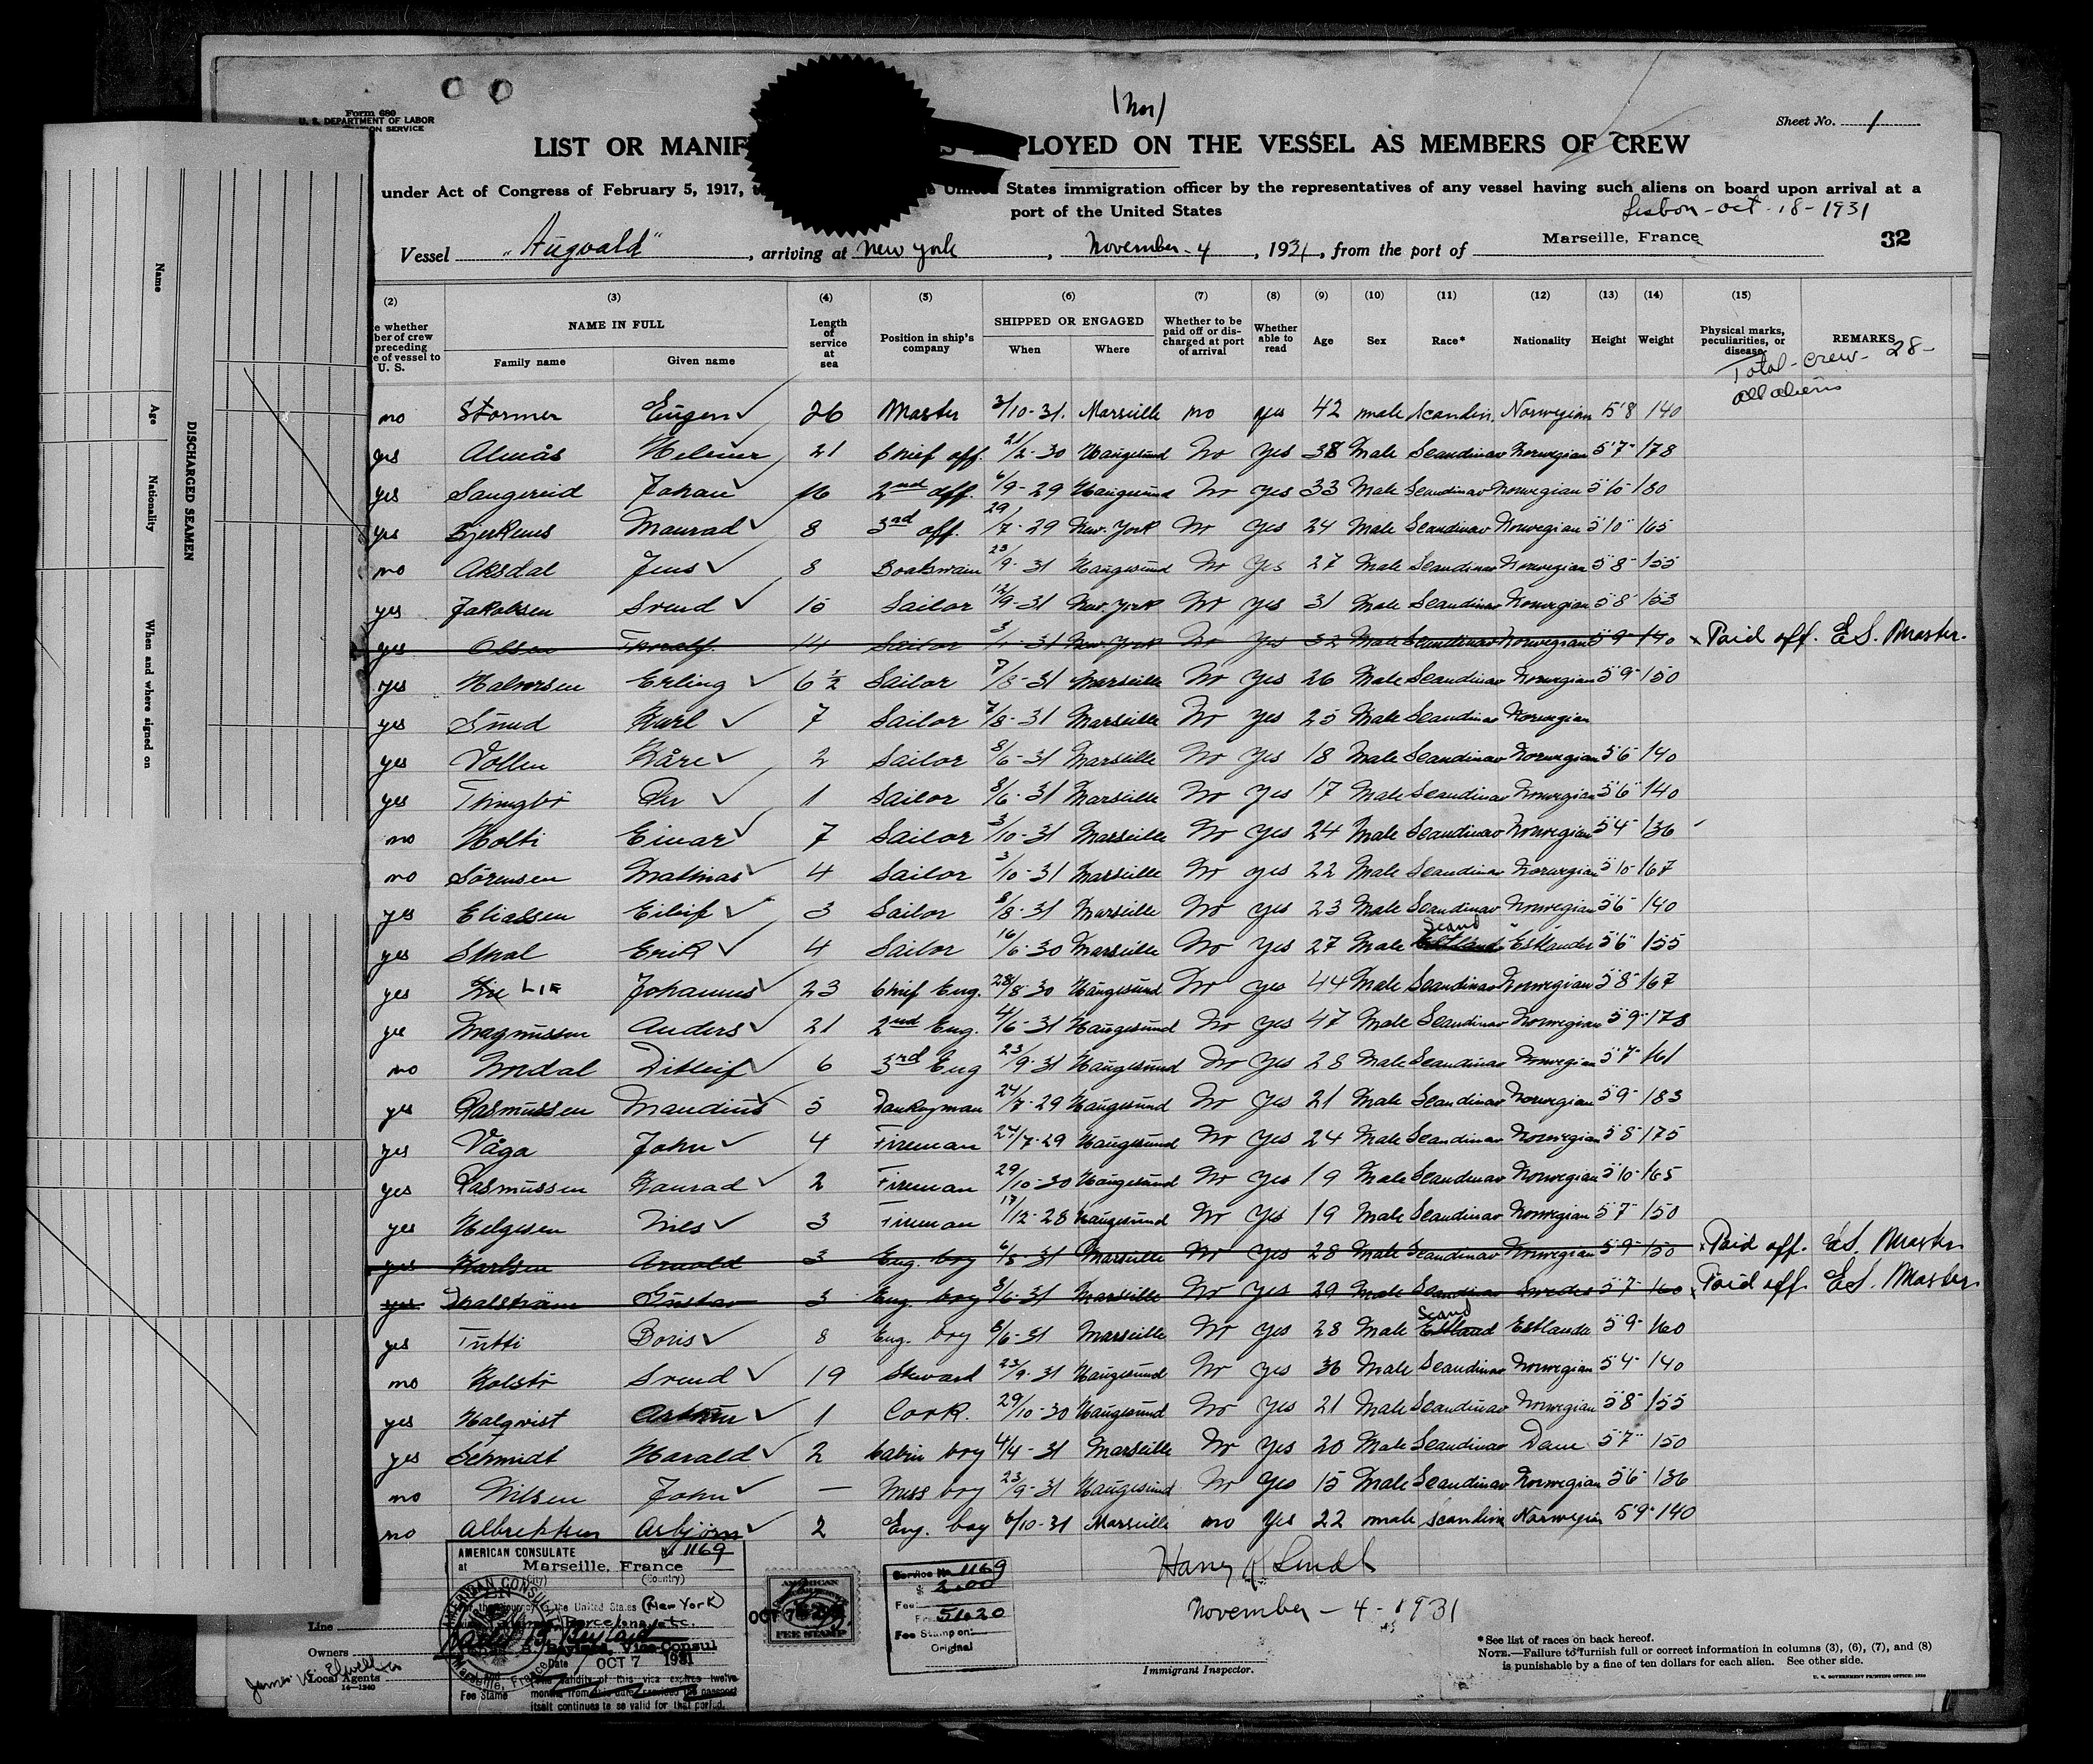 Form 680
U. S. DEPARTMENT OF LABOR
ION SERVICE
(Nor)
Sheet No. 1
LIST OR MANIF PLOYED ON THE VESSEL AS MEMBERS OF CREW
under Act of Congress of February 5, 1917, United States immigration officer by the representatives of any vessel having such aliens on board upon arrival at a
port of the United States
Lisbon - Oct - 18 - 1931
Vessel "Augvald", arriving at New York, November - 4, 1931, from the port of Marseille, France 32
(2) (3) (4) (5) (6) (7) (8) (9) (10) (11) (12) (13) (14) (15)
e whether
ber of crew
preceding
e of vessel to
U. S.
NAME IN FULL
Family name Given name
Length of service at sea
Position in ship's company
SHIPPED OR ENGAGED
When Where
Whether to be paid off or discharged at port of arrival
Whether able to read
Age Sex Race* Nationality Height Weight
Physical marks, peculiarities, or disease
REMARKS
Total - crew - 28 -
all aliens
no Stormer Eugen 26 Master 3/10-31. Marseille no yes 42 male Scandin. Norwegian 5'8 140
yes Almås Helmer 21 Chief off. 21/2-30 Haugesund No Yes 38 Male Scandinav Norwegian 5'7" 178
yes Saugereid Johan 16 2nd off. 6/9-29 Haugesund No Yes 33 Male Scandinav Norwegian 5'10 180
yes Bjerknes Manrad 8 3rd off. 29/7-29 New-York No Yes 24 Male Scandinav Norwegian 5'10" 165
no Aksdal Jens 8 Boatswain 23/9-31 Haugesund No Yes 27 Male Scandinav Norwegian 5'8" 155
yes Jakobsen Svend 10 Sailor 12/9-31 New-York No Yes 31 Male Scandinav Norwegian 5'8" 153
yes Olsen Thoralf 14 Sailor 3/1-31 New-York No Yes 32 Male Scandinav Norwegian 5'9" 140 x Paid off. E.S. Master.
yes Halvorsen Erling 6 1/2 Sailor 7/8-31 Marseille No Yes 26 Male Scandinav Norwegian 5'9" 150
yes Karl 7 Sailor 7/8-31 Marseille No Yes 25 Male Scandinav Norwegian
yes Vollen Kåre 2 Sailor 8/6-31 Marseille No Yes 18 Male Scandinav Norwegian 5'6" 140
yes Per 1 Sailor 8/6-31 Marseille No Yes 17 Male Scandinav Norwegian 5'6" 140
no Holti Einar 7 Sailor 3/10-31 Marseille No Yes 24 Male Scandinav Norwegian 5'4" 136
no Sörensen Mathias 4 Sailor 3/10-31 Marseille No yes 22 Male Scandinav Norwegian 5'10" 167
yes Eliassen Eilif 3 Sailor 8/8-31 Marseille No Yes 23 Male Scandinav Norwegian 5'6" 140
yes Erik 4 Sailor 16/6-30 Marseille No Yes 27 Male Estland Scand Estlander 5'6" 155
yes Lie LIE Johannes 23 Chief Eng. 28/8-30 Haugesund No yes 44 Male Scandinav Norwegian 5'8" 167
yes Magnussen Anders 21 2nd Eng. 4/6-31 Haugesund No Yes 47 Male Scandinav Norwegian 5'9" 178
no Ditleif 6 3rd Eng 23/9-31 Haugesund No Yes 28 Male Scandinav Norwegian 5'7" 161
yes Rasmussen Maudius 5 Dankeyman 24/7-29 Haugesund No Yes 21 Male Scandinav Norwegian 5'9" 183
yes Våga John 4 Fireman 24/7-29 Haugesund No Yes 24 Male Scandinav Norwegian 5'8" 175
yes Rasmussen Kanrad 2 Fireman 29/10-30 Haugesund No Yes 19 Male Scandinav Norwegian 5'10" 165
yes Helgesen Nils 3 Fireman 17/12-28 Haugesund No Yes 19 Male Scandinav Norwegian 5'7" 150
yes Karlsen Arnold 3 Eng. boy 6/8-31 Marseille No Yes 28 Male Scandinav Norwegian 5'9" 150 x Paid off. E.S. Master
yes Malström Gustav 3 Eng. boy 8/6-31 Marseille No Yes 29 Male Scandinav Swedes 5'7" 160 x Paid off. E.S. Master
yes Tutti Boris 8 Eng. boy 8/6-31 Marseille No Yes 28 Male Estland Scand Estlande 5'9" 160
no Kolstö Svend 19 Steward 23/9-31 Haugesund No Yes 36 Male Scandinav Norwegian 5'4" 140
yes Halqvist 1 Cook. 29/10-30 Haugesund No Yes 21 Male Scandinav Norwegian 5'8" 155
yes Schmidt Harald 2 Cabin boy 4/4-31 Marseille No Yes 20 Male Scandinav Dane 5'7" 150
no Nilsen John — Mess boy 23/9-31 Haugesund No Yes 15 Male Scandinav Norwegian 5'6" 136
no Albrektsen Asbjørn 2 Eng. boy 6/10-31 Marseille no Yes 22 male Scandin Norwegian 5'9" 140
Name
Age
Nationality
When and where signed on
DISCHARGED SEAMEN
AMERICAN CONSULATE No 1169
at Marseille, France
(City) (Country)
the United States (New York)
Barcelona etc.
Vice Consul
Date OCT 7 1931
The validity of this visa expires twelve
months from this date provided the passport
itself continues to be valid for that period.
Fee Stamp
AMERICAN CONSULATE
Marseille, France
AMERICAN
OCT 7
FEE STAMP
Service No 1169
$ 2.00
Fee
Fr. 51.20
Fee Stamp on:
Original
Harry
November - 4 - 1931
Immigrant Inspector.
Line
Owners
Local Agents
14—1240
*See list of races on back hereof.
NOTE.—Failure to furnish full or correct information in columns (3), (6), (7), and (8)
is punishable by a fine of ten dollars for each alien. See other side.
U. S. GOVERNMENT PRINTING OFFICE: 1930